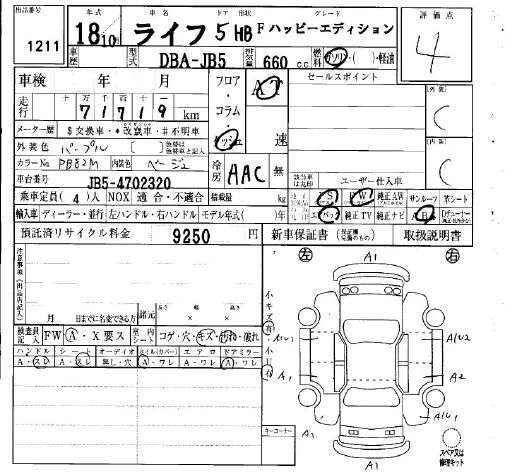 出品番号 1211
年式 18/10
車名 ライフ
ドア 形状 5 HB
グレード F ハッピーエディション
評価点 4
車歴
型式 DBA-JB5
排気量 660 c.c.
燃料 ガソリン・( )・軽油
車検 年 月
フロア・コラム・インパネ
AT 速
セールスポイント
走行 十 万 千 百 十
7 1 7 1 9 km
メーター歴 $交換車・*改竄車・#不明車
外装色 パープル
カラーNo PB82M 内装色 ベージュ
車台番号 JB5-4702320
冷房 AAC 無
[外装] C
[内装] C
ユーザー仕入車
乗車定員 (4)人 NOX 適合・不適合 積載量 kg
輸入車 ディーラー・並行 左ハンドル・右ハンドル モデル年式( )年
該当車は丸印
PS PW 純正AW サンルーフ 革シート
エアバック 純正TV 純正ナビ ABS
預託済リサイクル料金 9250 円
新車保証書 取扱説明書
注意事項(出品店記入)
月 日までに名変できる方
諸元 長さ × 幅 × 高さ
検査員記入 FW A・X要ス
室内シート コゲ・穴・キズ・汚れ・破れ
ハンドル シート オーディオ ホイル(カバー) エアロ ドアミラー
A・スレ A・スレ 無し・穴 A・ワレ A・ワレ A・ワレ
キーコーナー
小キズ有
小凹有
左 A1 右
A1U1
A1U2
A1
A2
A2
A1U1
A1
スペア又は
修理キット